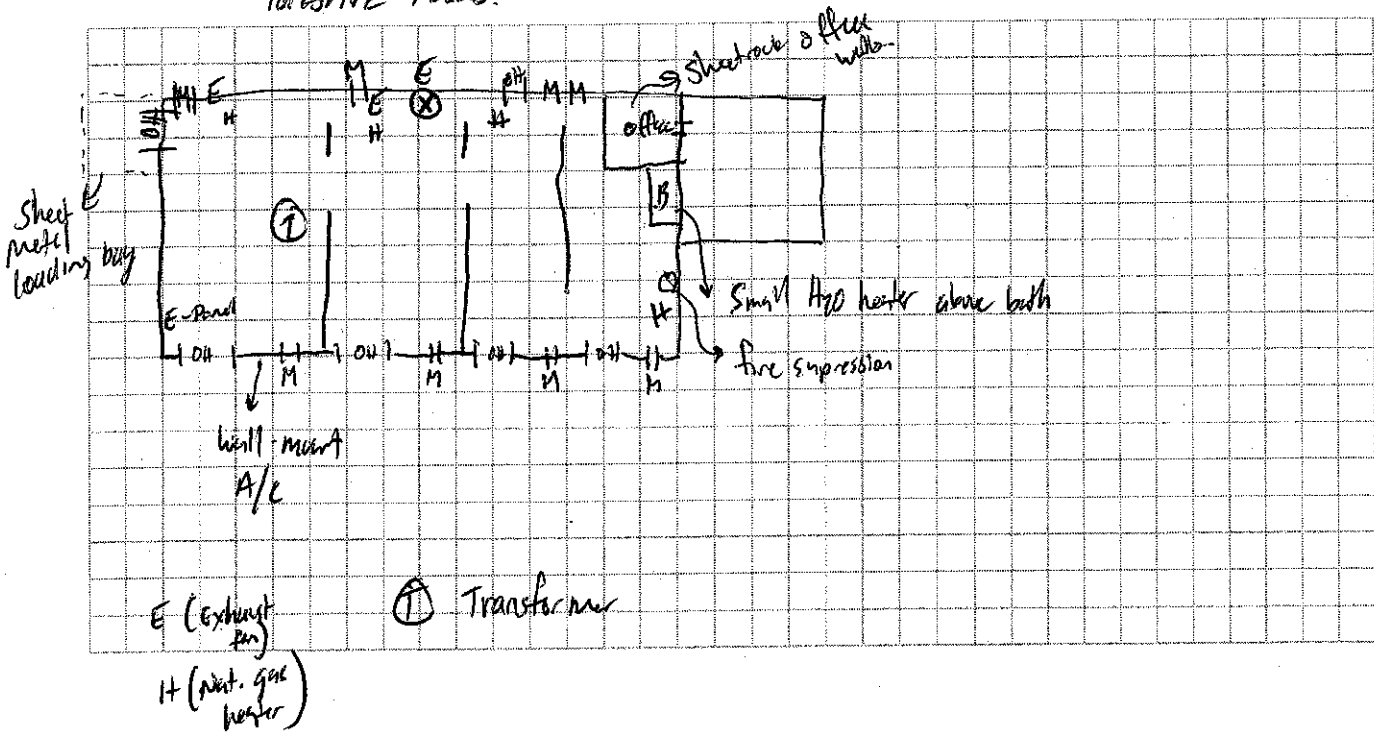 Sheetrock office
walls
M
E
OH
M
M
M
E
H
E
H
X
H
OH
office
B
Sheet
Metal
loading bay
T
E-Panel
H
Small H2O heater above bath
fire supression
OH
OH
OH
OH
M
M
M
M
Wall-mount
A/C
E (Exhaust
fan)
T Transformer
H (Nat. gas
heater)